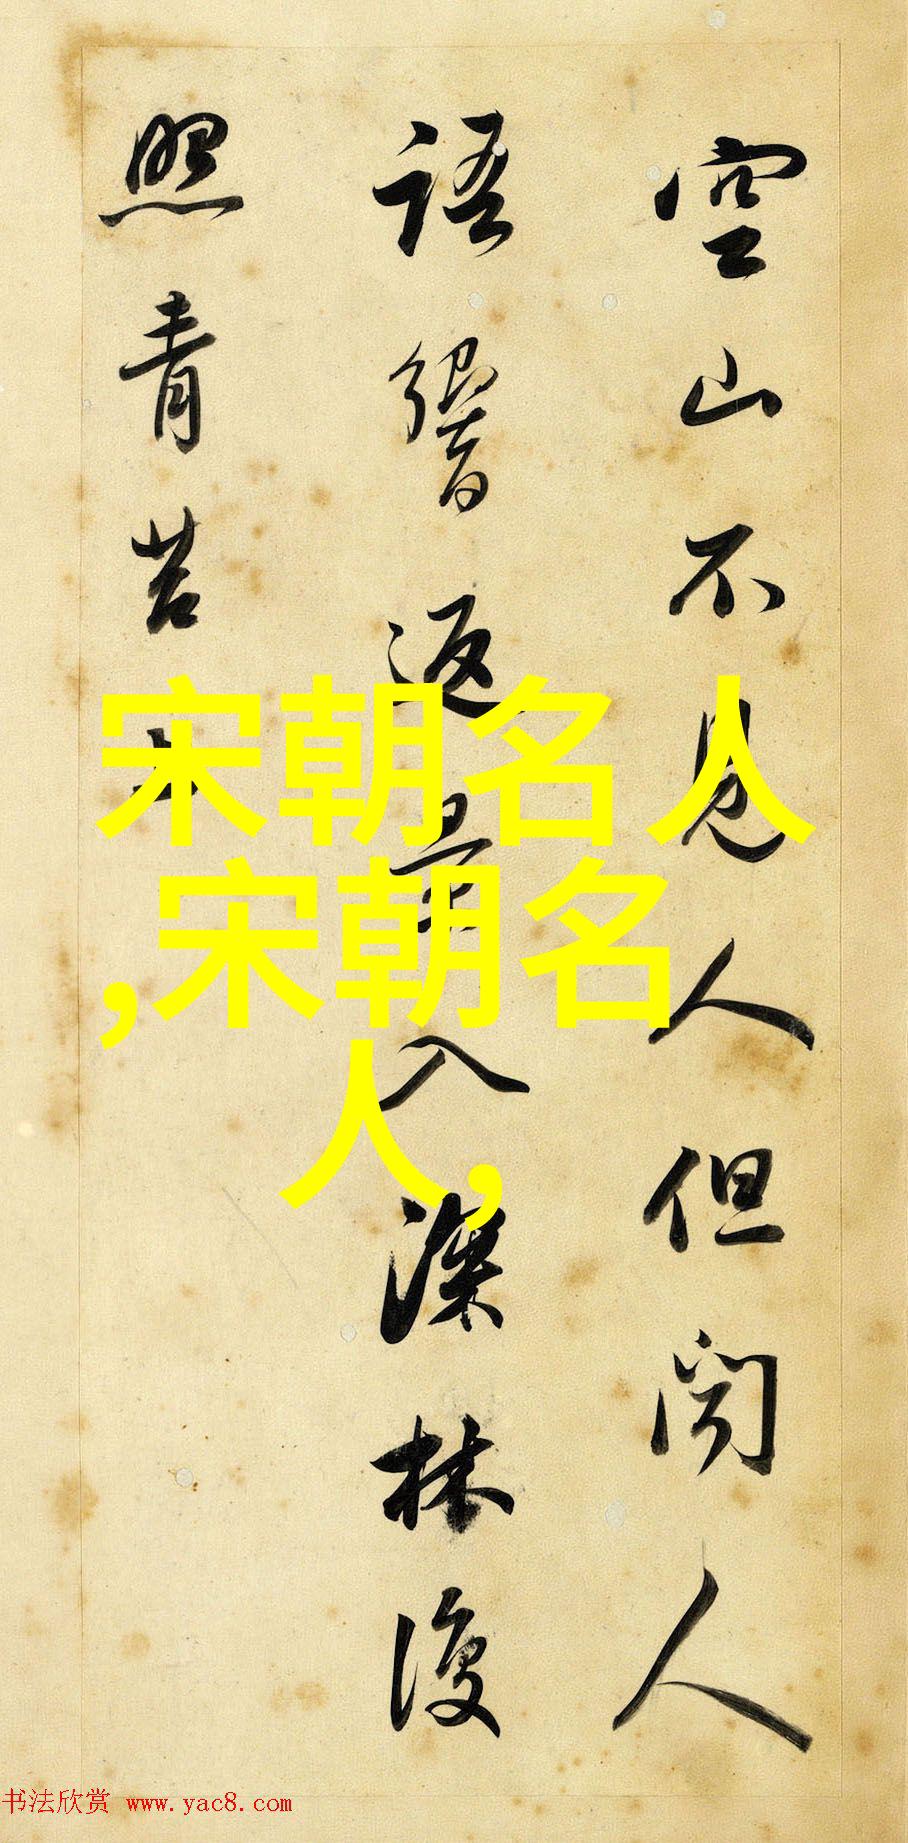 空山不見人但聞人
語響返景入深林復
照青苔上
宋朝名人
,宋朝名
人,
书法欣赏 www.yac8.com